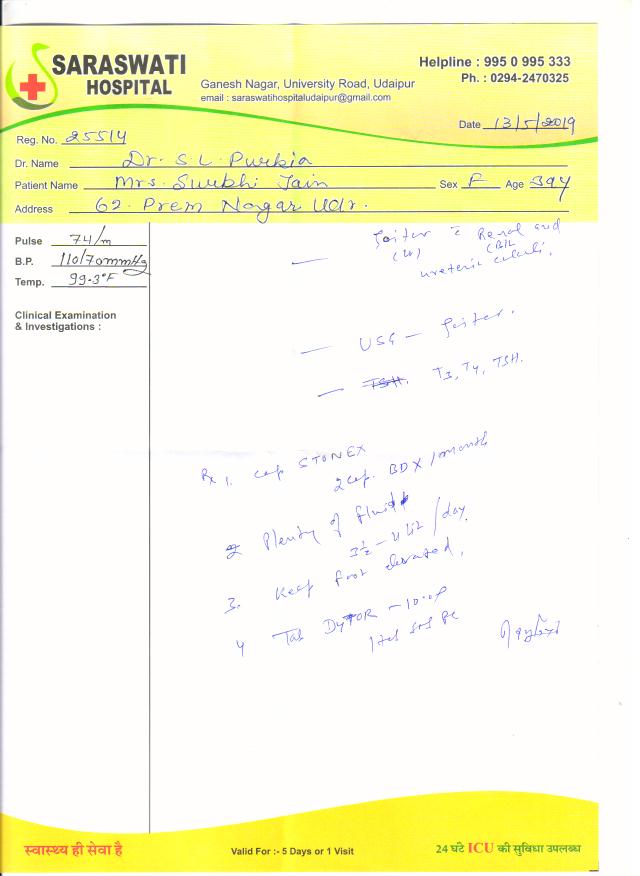 SARASWATI
HOSPITAL
Ganesh Nagar, University Road, Udaipur
email : saraswatihospitaludaipur@gmail.com
Helpline : 995 0 995 333
Ph. : 0294-2470325
Date 13/5/2019
Reg. No. 25514
Dr. Name Dr. S. L. Purbia
Patient Name Mrs. Surbhi Jain Sex F Age 39y
Address 62. Prem Nagar Udr.
Pulse 74/m
B.P. 110/70mmHg
Temp. 99.3°F
Clinical Examination
& Investigations :
— Goiter c̄ Renal and
(B/L
ureteric calculi.
— USG — Goiter.
— TSH. T3, T4, TSH.
Rx 1. Cap STONEX
2 cap. BD X 1 month
2 Plenty of fluid
3½ – 4 lit / day.
3. Keep foot elevated,
4 Tab DYTOR – 10
1 tab SOS
स्वास्थ्य ही सेवा है
Valid For :- 5 Days or 1 Visit
24 घंटे ICU की सुविधा उपलब्ध